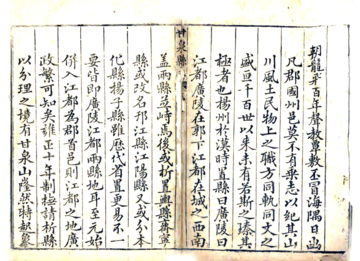 朝龍平百年聲教覃敷丕冒海隅日出
凡郡國州邑莫不有乘志以紀其山
川風土民物上之職方同軌同文之
盛亘千百世以來未有若斯之臻其
極者也揚州於漢時置縣曰廣陵曰
江都廣陵在郭下江都在城之西南
甘泉縣
蓋兩縣並峙焉後或析置輿縣齊寧
縣或改名邗江縣江陽縣又或分本
化縣揚子縣雖歷代省置更易不一
要皆即廣陵江都兩縣地耳至元始
併入江都為郡首邑則江都之地廣
政繁可知矣雍正十年制極請析縣
以分理之境有甘泉山隆然特起蓋